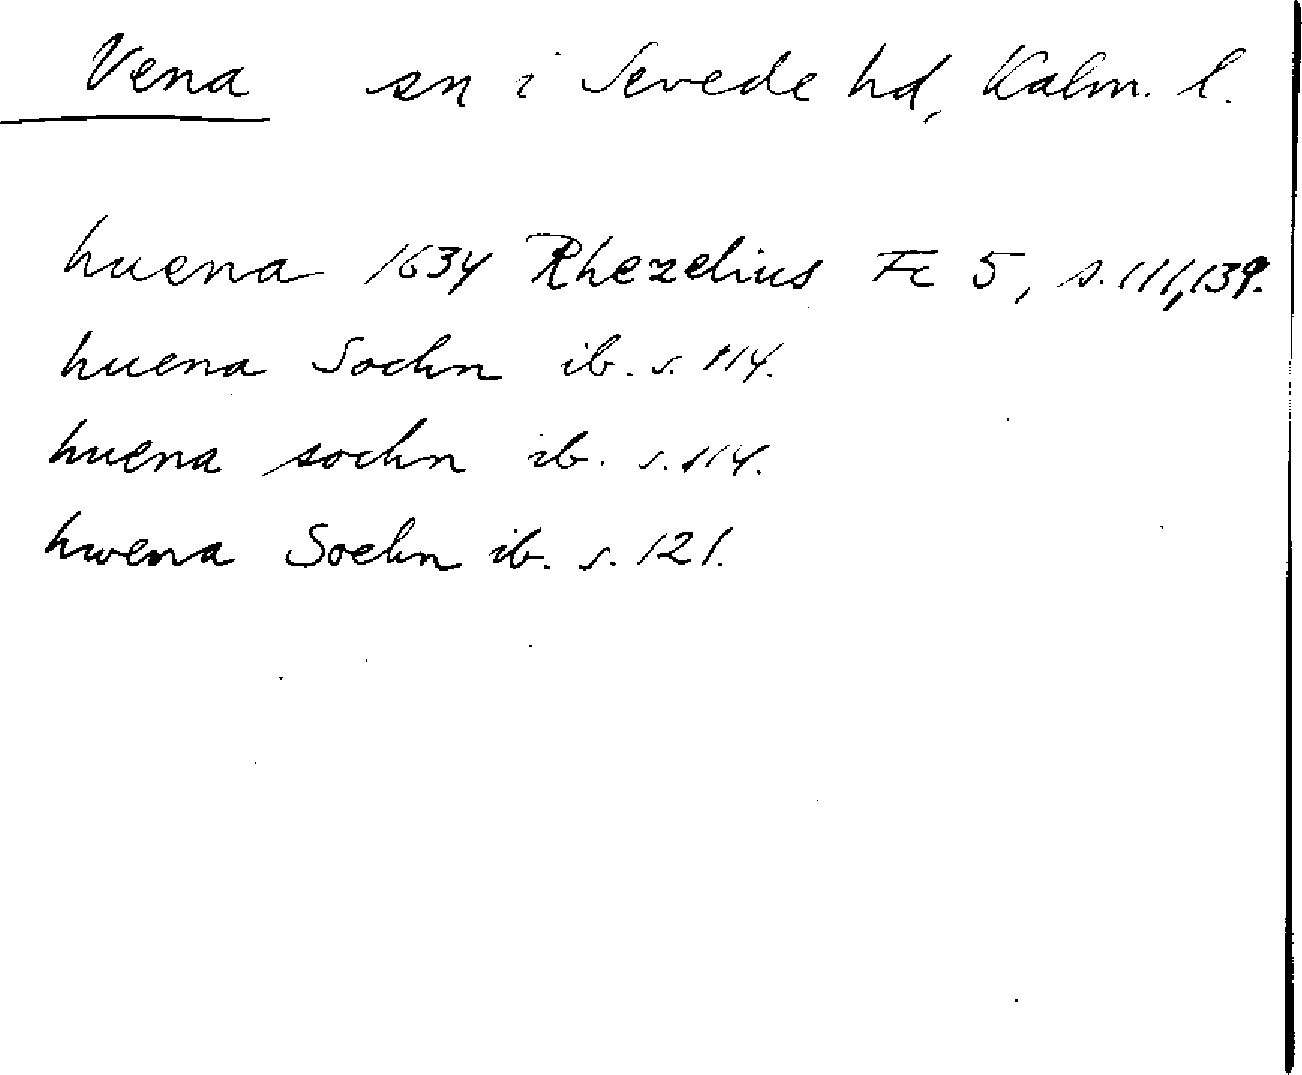 Vena sn i Sevede hd, Kalm. l.
huena 1634 Rhezelius Fc 5, s. 111, 139.
huena Sochn ib. s. 114.
huena sochn ib. s. 114.
hwena Sochn ib. s. 121.